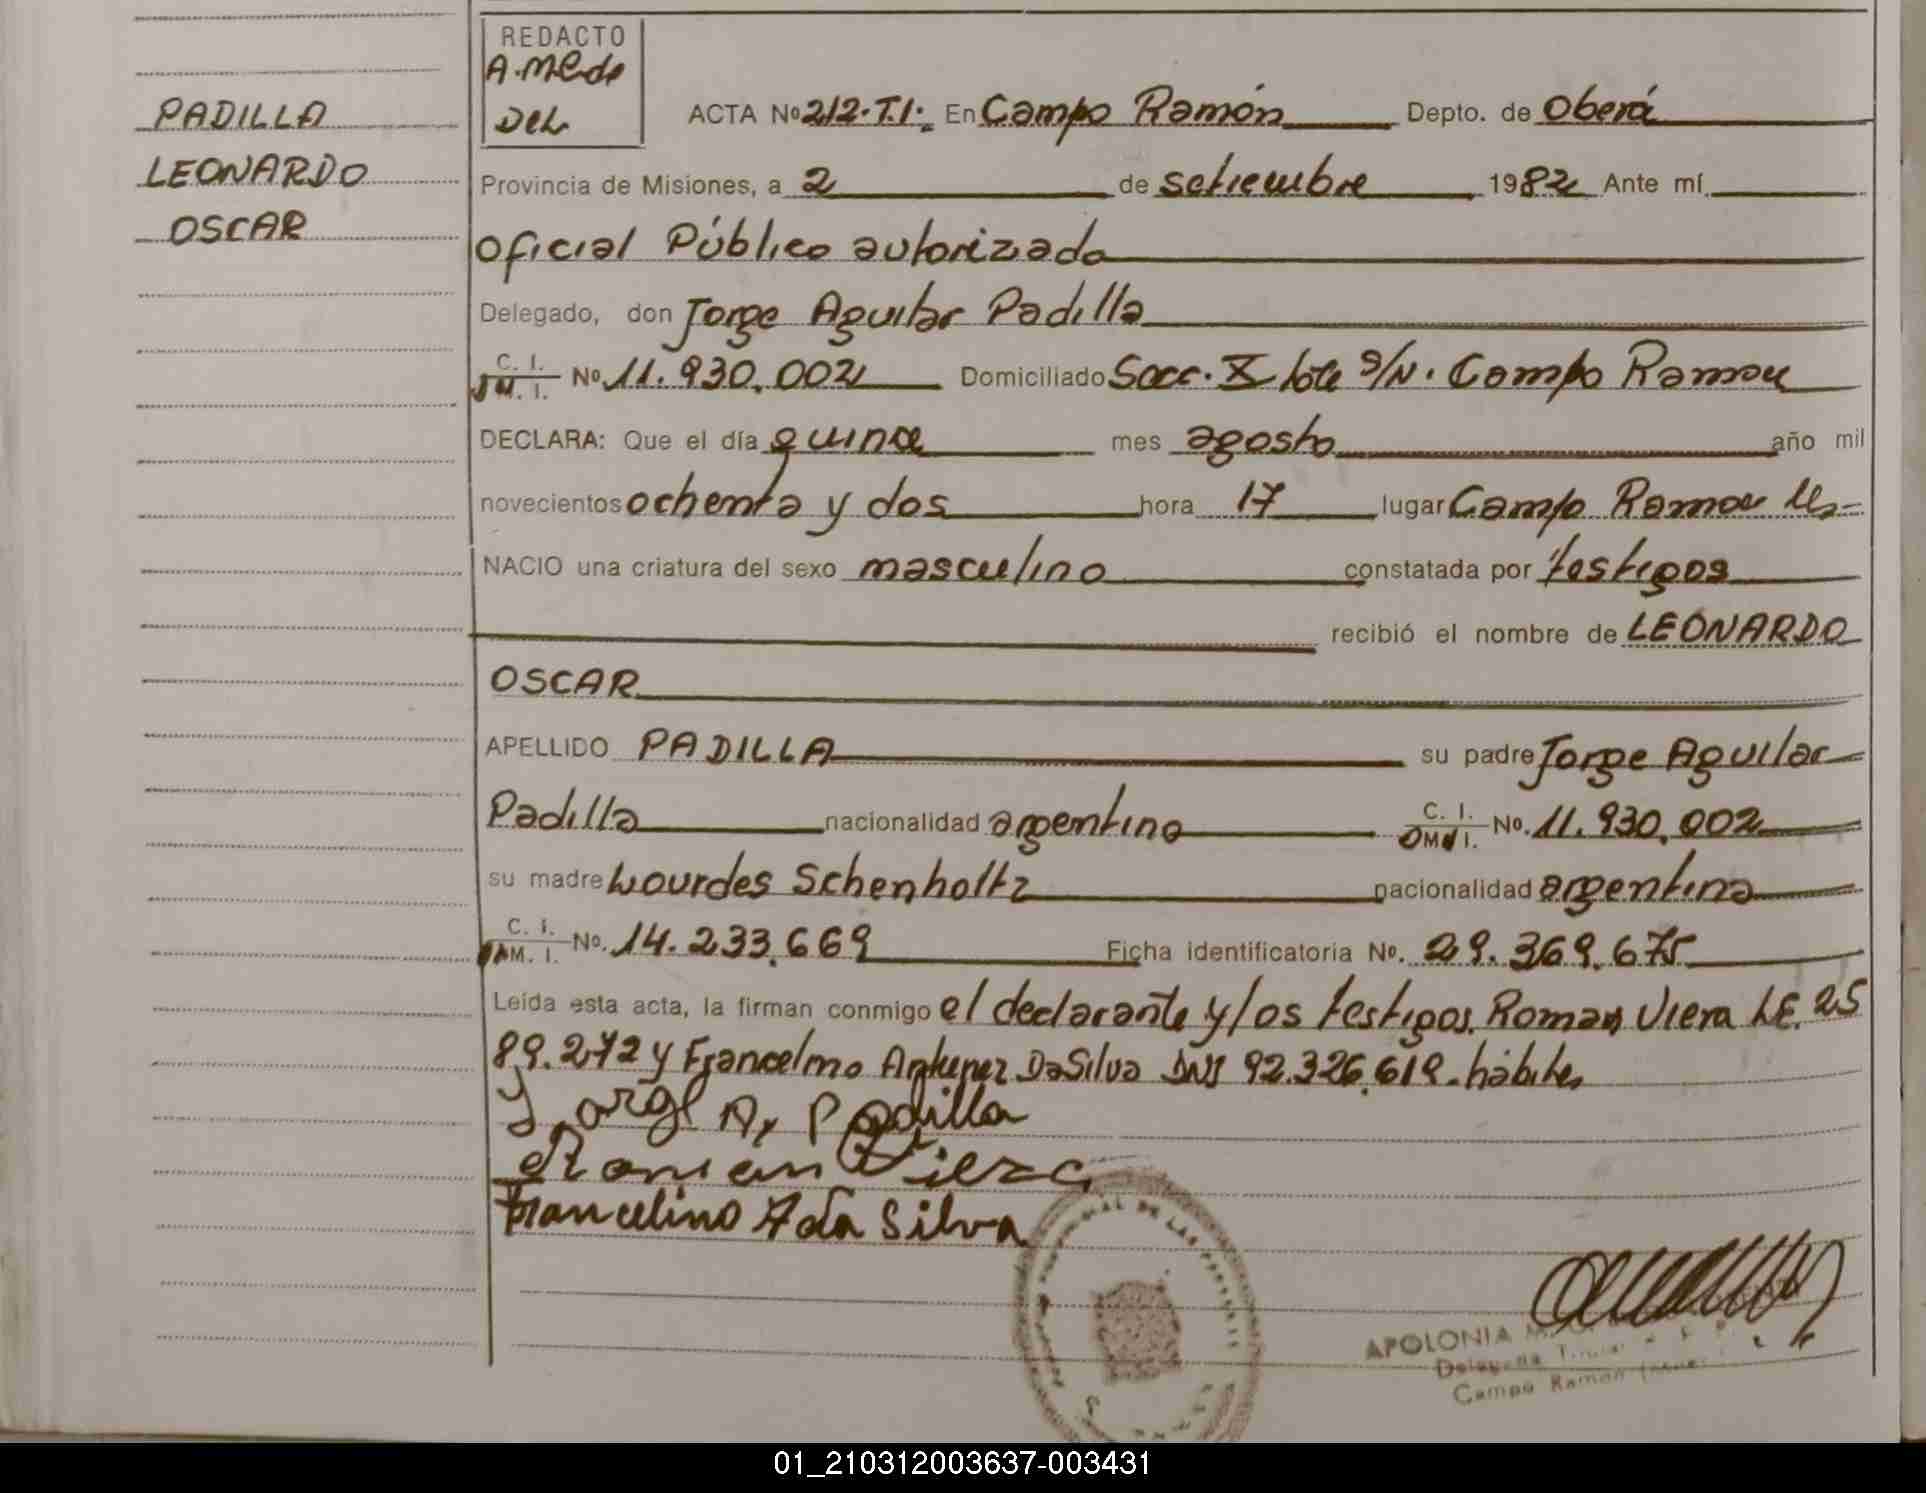 PADILLA
LEONARDO
OSCAR
REDACTO
DEL
ACTA Nº 212.T.I. En Campo Ramón Depto. de Oberá
Provincia de Misiones, a 2 de setiembre 1982 Ante mí.
Oficial Público autorizado
Delegado, don Jorge Aguilar Padilla
C. I. M. I. Nº 11.930.002 Domiciliado Secc. X lote s/N. Campo Ramon
DECLARA: Que el día quince mes agosto año mil
novecientos ochenta y dos hora 17 lugar Campo Ramon
NACIO una criatura del sexo masculino constatada por testigos
recibió el nombre de LEONARDO
OSCAR
APELLIDO PADILLA su padre Jorge Aguilar
Padilla nacionalidad argentino C. I. M. I. No. 11.930.002
su madre Lourdes Schenholtz nacionalidad argentina
C. I. M. I. No. 14.233.669 Ficha identificatoria No. 29.369.675
Leída esta acta, la firman conmigo el declarante y los testigos. Roman Viera LE. 25
89.272 y DaSilva DNI 92.326.619. hábiles
Jorge A, Padilla
Roman Viera
Francelino A da Silva
APOLONIA
Campo Ramon
01_210312003637-003431